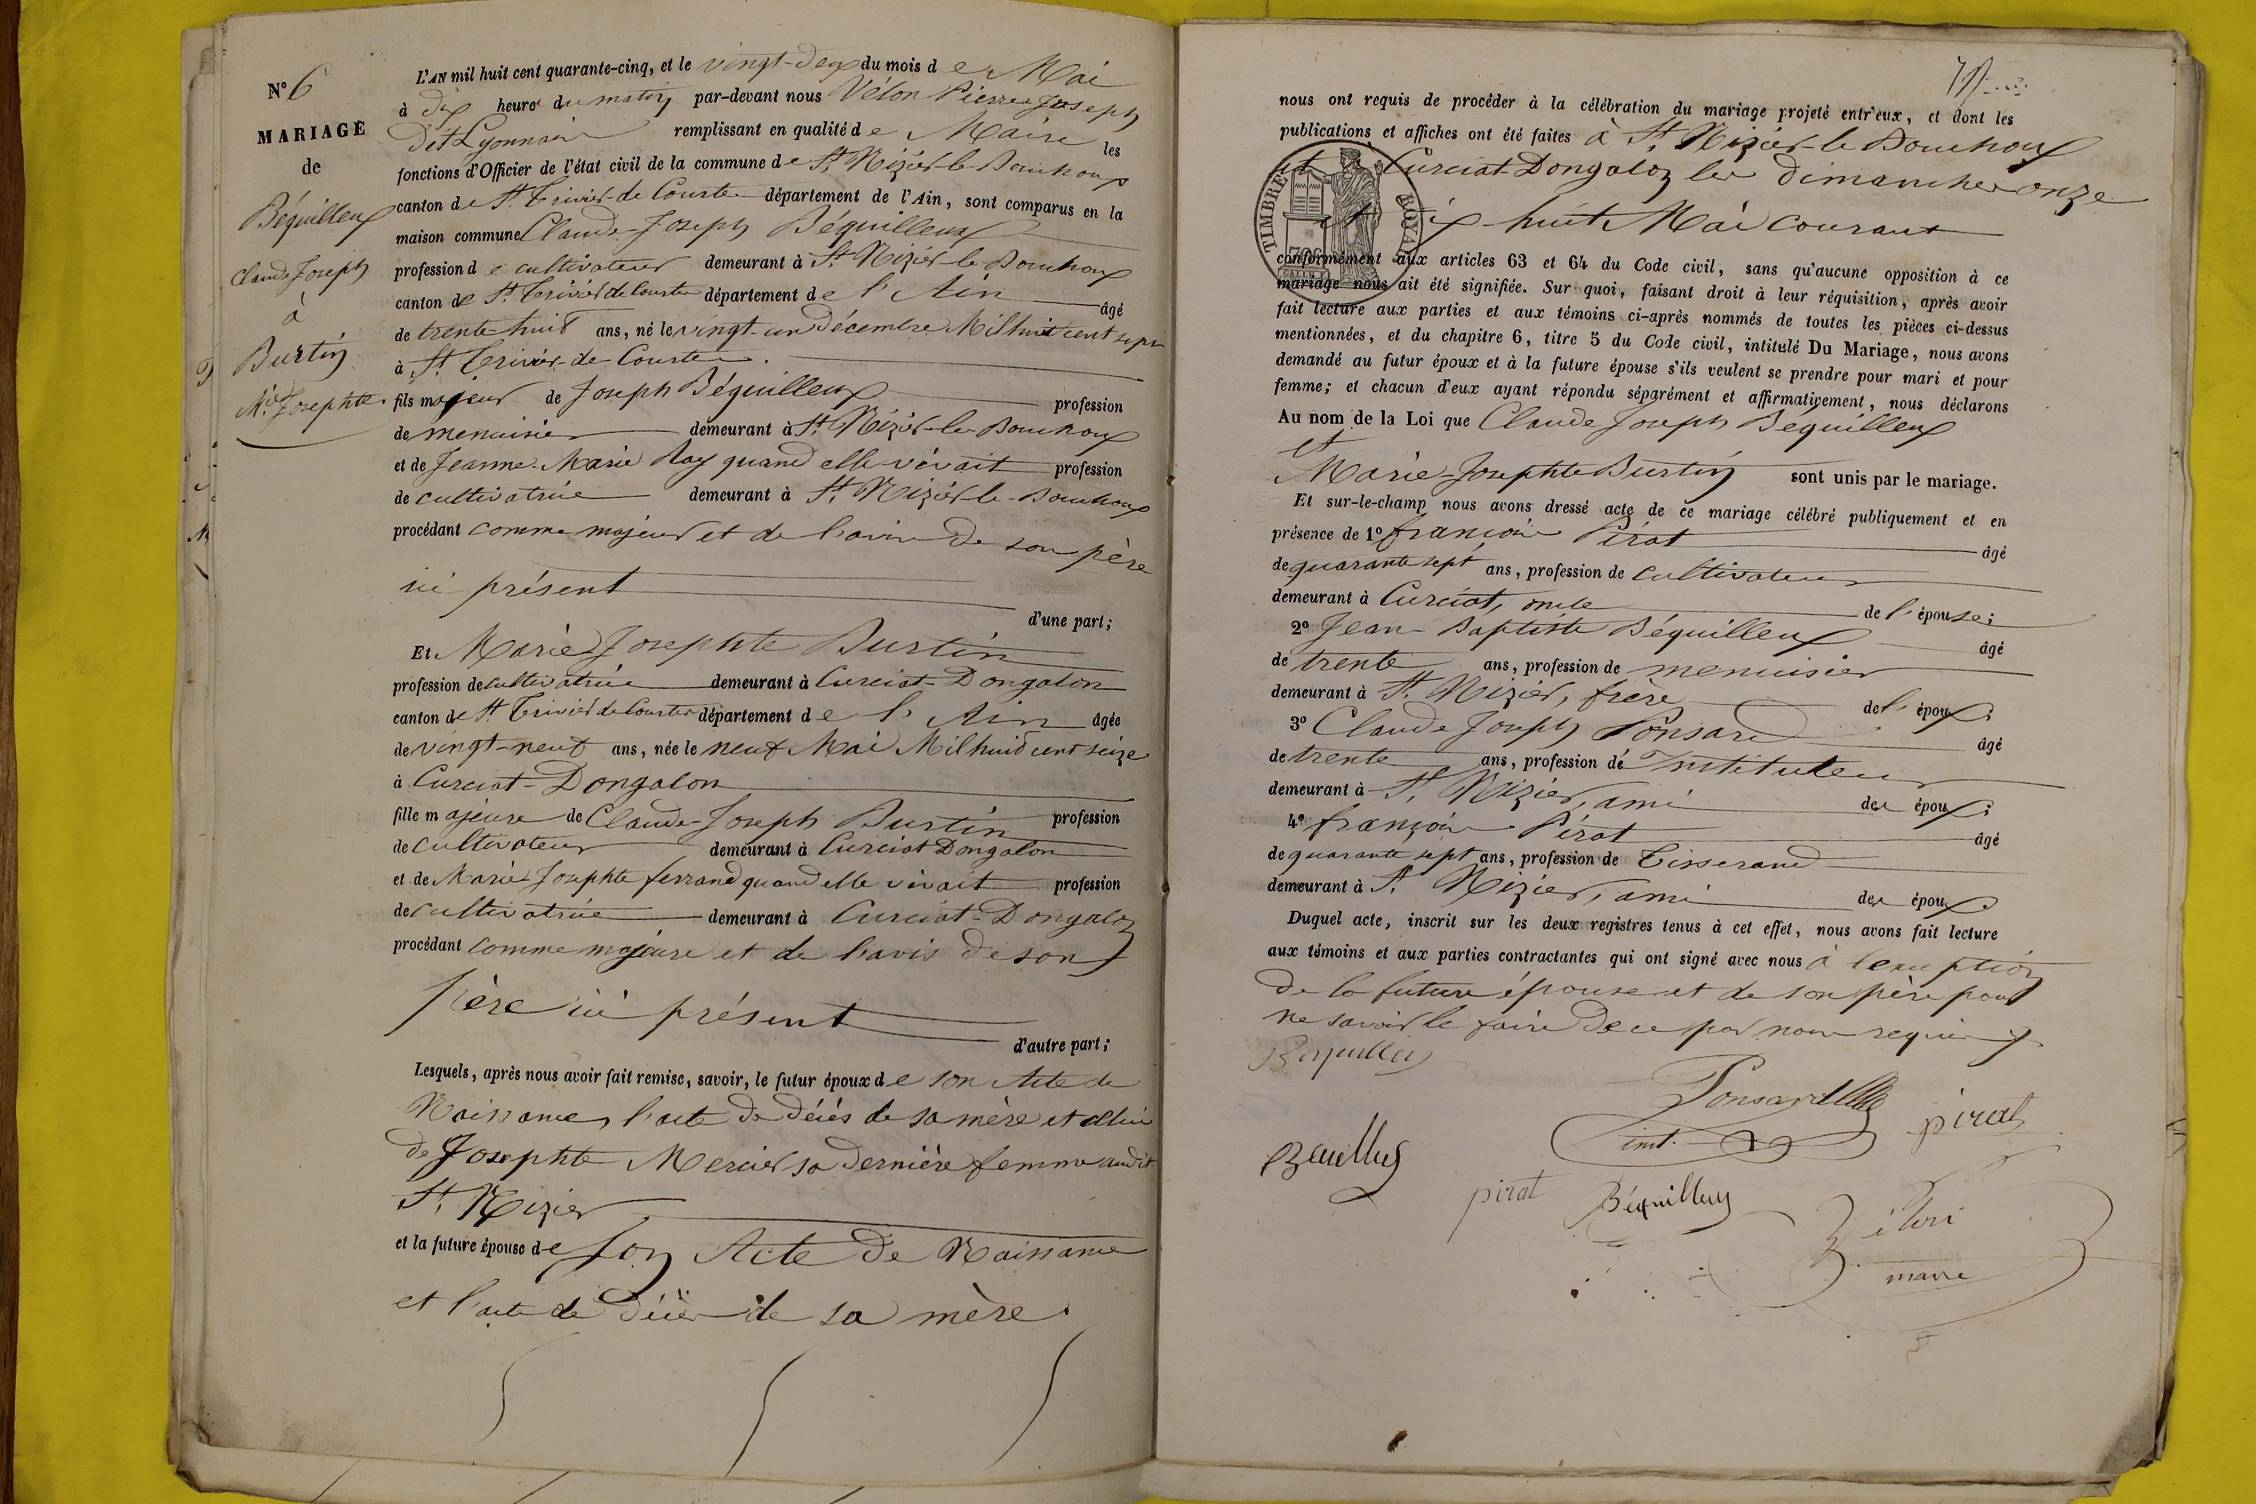 N° 6
MARIAGE
de
Béquilleux
Claude Joseph
à
Burtin
Mie Josephte
L'AN mil huit cent quarante-cinq, et le vingt-deux du mois de Mai
à dix heures du matin par-devant nous Vélon Pierre Joseph
dit Lyonnais remplissant en qualité de Maire les
fonctions d'Officier de l'état civil de la commune de St Nizier-le-Bouchoux
canton de St Trivier-de-Courtes département de l'Ain, sont comparus en la
maison commune Claude-Joseph Béquilleux
profession de cultivateur demeurant à St Nizier-le-Bouchoux
canton de St Trivier de Courtes département de l'Ain âgé
de trente huit ans, né le vingt-un Décembre Mil huit cent sept
à St Trivier-de-Courtes.
fils majeur de Joseph Béquilleux profession
de menuisier demeurant à St Nizier-le-Bouchoux
et de Jeanne-Marie Ray quand elle vivait profession
de cultivatrice demeurant à St Nizier-le-Bouchoux
procédant comme majeur et de l'avis de son père
ici présent
d'une part;
Et Marie Josephte Burtin
profession de cultivatrice demeurant à Curciat-Dongalon
canton de St Trivier de Courtes département de l'Ain âgée
de vingt-neuf ans, née le neuf Mai Mil huit cent seize
à Curciat-Dongalon
fille majeure de Claude-Joseph Burtin profession
de cultivateur demeurant à Curciat Dongalon
et de Marie-Josephte ferrand quand elle vivait profession
de cultivatrice demeurant à Curciat-Dongalon
procédant comme majeure et de l'avis de son
père ici présent
d'autre part;
Lesquels, après nous avoir fait remise, savoir, le futur époux de son Acte de
Naissance, l'acte de décès de sa mère et celui
de Josephte Mercier sa dernière femme audit
St Nizier
et la future épouse de son Acte de Naissance
et l'acte de décès de sa mère.
nous ont requis de procéder à la célébration du mariage projeté entr'eux, et dont les
publications et affiches ont été faites à St Nizier-le-Bouchoux
et Curciat-Dongalon les dimanches onze
et dix-huit Mai courant
TIMBRE ROYAL
conformément aux articles 63 et 64 du Code civil, sans qu'aucune opposition à ce
mariage nous ait été signifiée. Sur quoi, faisant droit à leur réquisition, après avoir
fait lecture aux parties et aux témoins ci-après nommés de toutes les pièces ci-dessus
mentionnées, et du chapitre 6, titre 5 du Code civil, intitulé Du Mariage, nous avons
demandé au futur époux et à la future épouse s'ils veulent se prendre pour mari et pour
femme; et chacun d'eux ayant répondu séparément et affirmativement, nous déclarons
Au nom de la Loi que Claude Joseph Béquilleux
et
Marie-Josephte Burtin sont unis par le mariage.
Et sur-le-champ nous avons dressé acte de ce mariage célébré publiquement et en
présence de 1° françois Pirat âgé
de quarante sept ans, profession de cultivateur
demeurant à Curciat, oncle de l'épouse;
2° Jean-Baptiste Béquilleux âgé
de trente ans, profession de menuisier
demeurant à St Nizier, frère de l'époux;
3° Claude Joseph Ponsard âgé
de trente ans, profession de Instituteur
demeurant à St Nizier, ami des époux;
4° françois Pirat âgé
de quarante sept ans, profession de Tisserand
demeurant à St Nizier, ami des époux.
Duquel acte, inscrit sur les deux registres tenus à cet effet, nous avons fait lecture
aux témoins et aux parties contractantes qui ont signé avec nous à l'exception
de la future épouse et de son père pour
ne savoir le faire de ce par nous requis
Béquilleux
Ponsard
inst.
pirat
pirat
Béquilleux
Vélon
maire